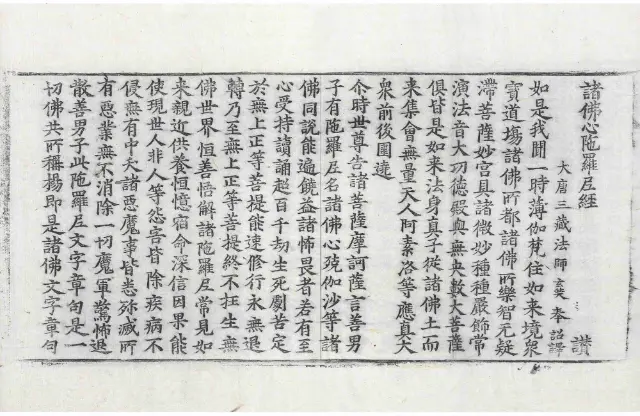 諸佛心陁羅尼經 讃
大唐三藏法師玄奘奉詔譯
如是我聞一時薄伽梵住如来境衆
寶道塲諸佛所都諸佛所樂智无疑
滯菩薩妙宫具諸微妙種種嚴飾常
演法音大功德殿與無央數大菩薩
俱皆是如来法身真子從諸佛土而
来集會無量天人阿素洛等應真大
衆前後圍遶
尒時世尊告諸菩薩摩訶薩言善男
子有陁羅尼名諸佛心殑伽沙等諸
佛同說能遍饒益諸怖畏者若有至
心受持讀誦超百千劫生死劇苦定
於無上正等菩提能速修行永無退
轉乃至無上正等菩提終不抂生無
佛世界恒善悟解諸陁羅尼常見如
来親近供養恒憶宿命深信因果能
使現世人非人等怨害皆除疾病不
侵無有中夭諸惡魔事皆悉殄滅所
有惡業無不消除一切魔軍驚怖退
散善男子此陁羅尼文字章句是一
切佛共所稱揚即是諸佛文字章句